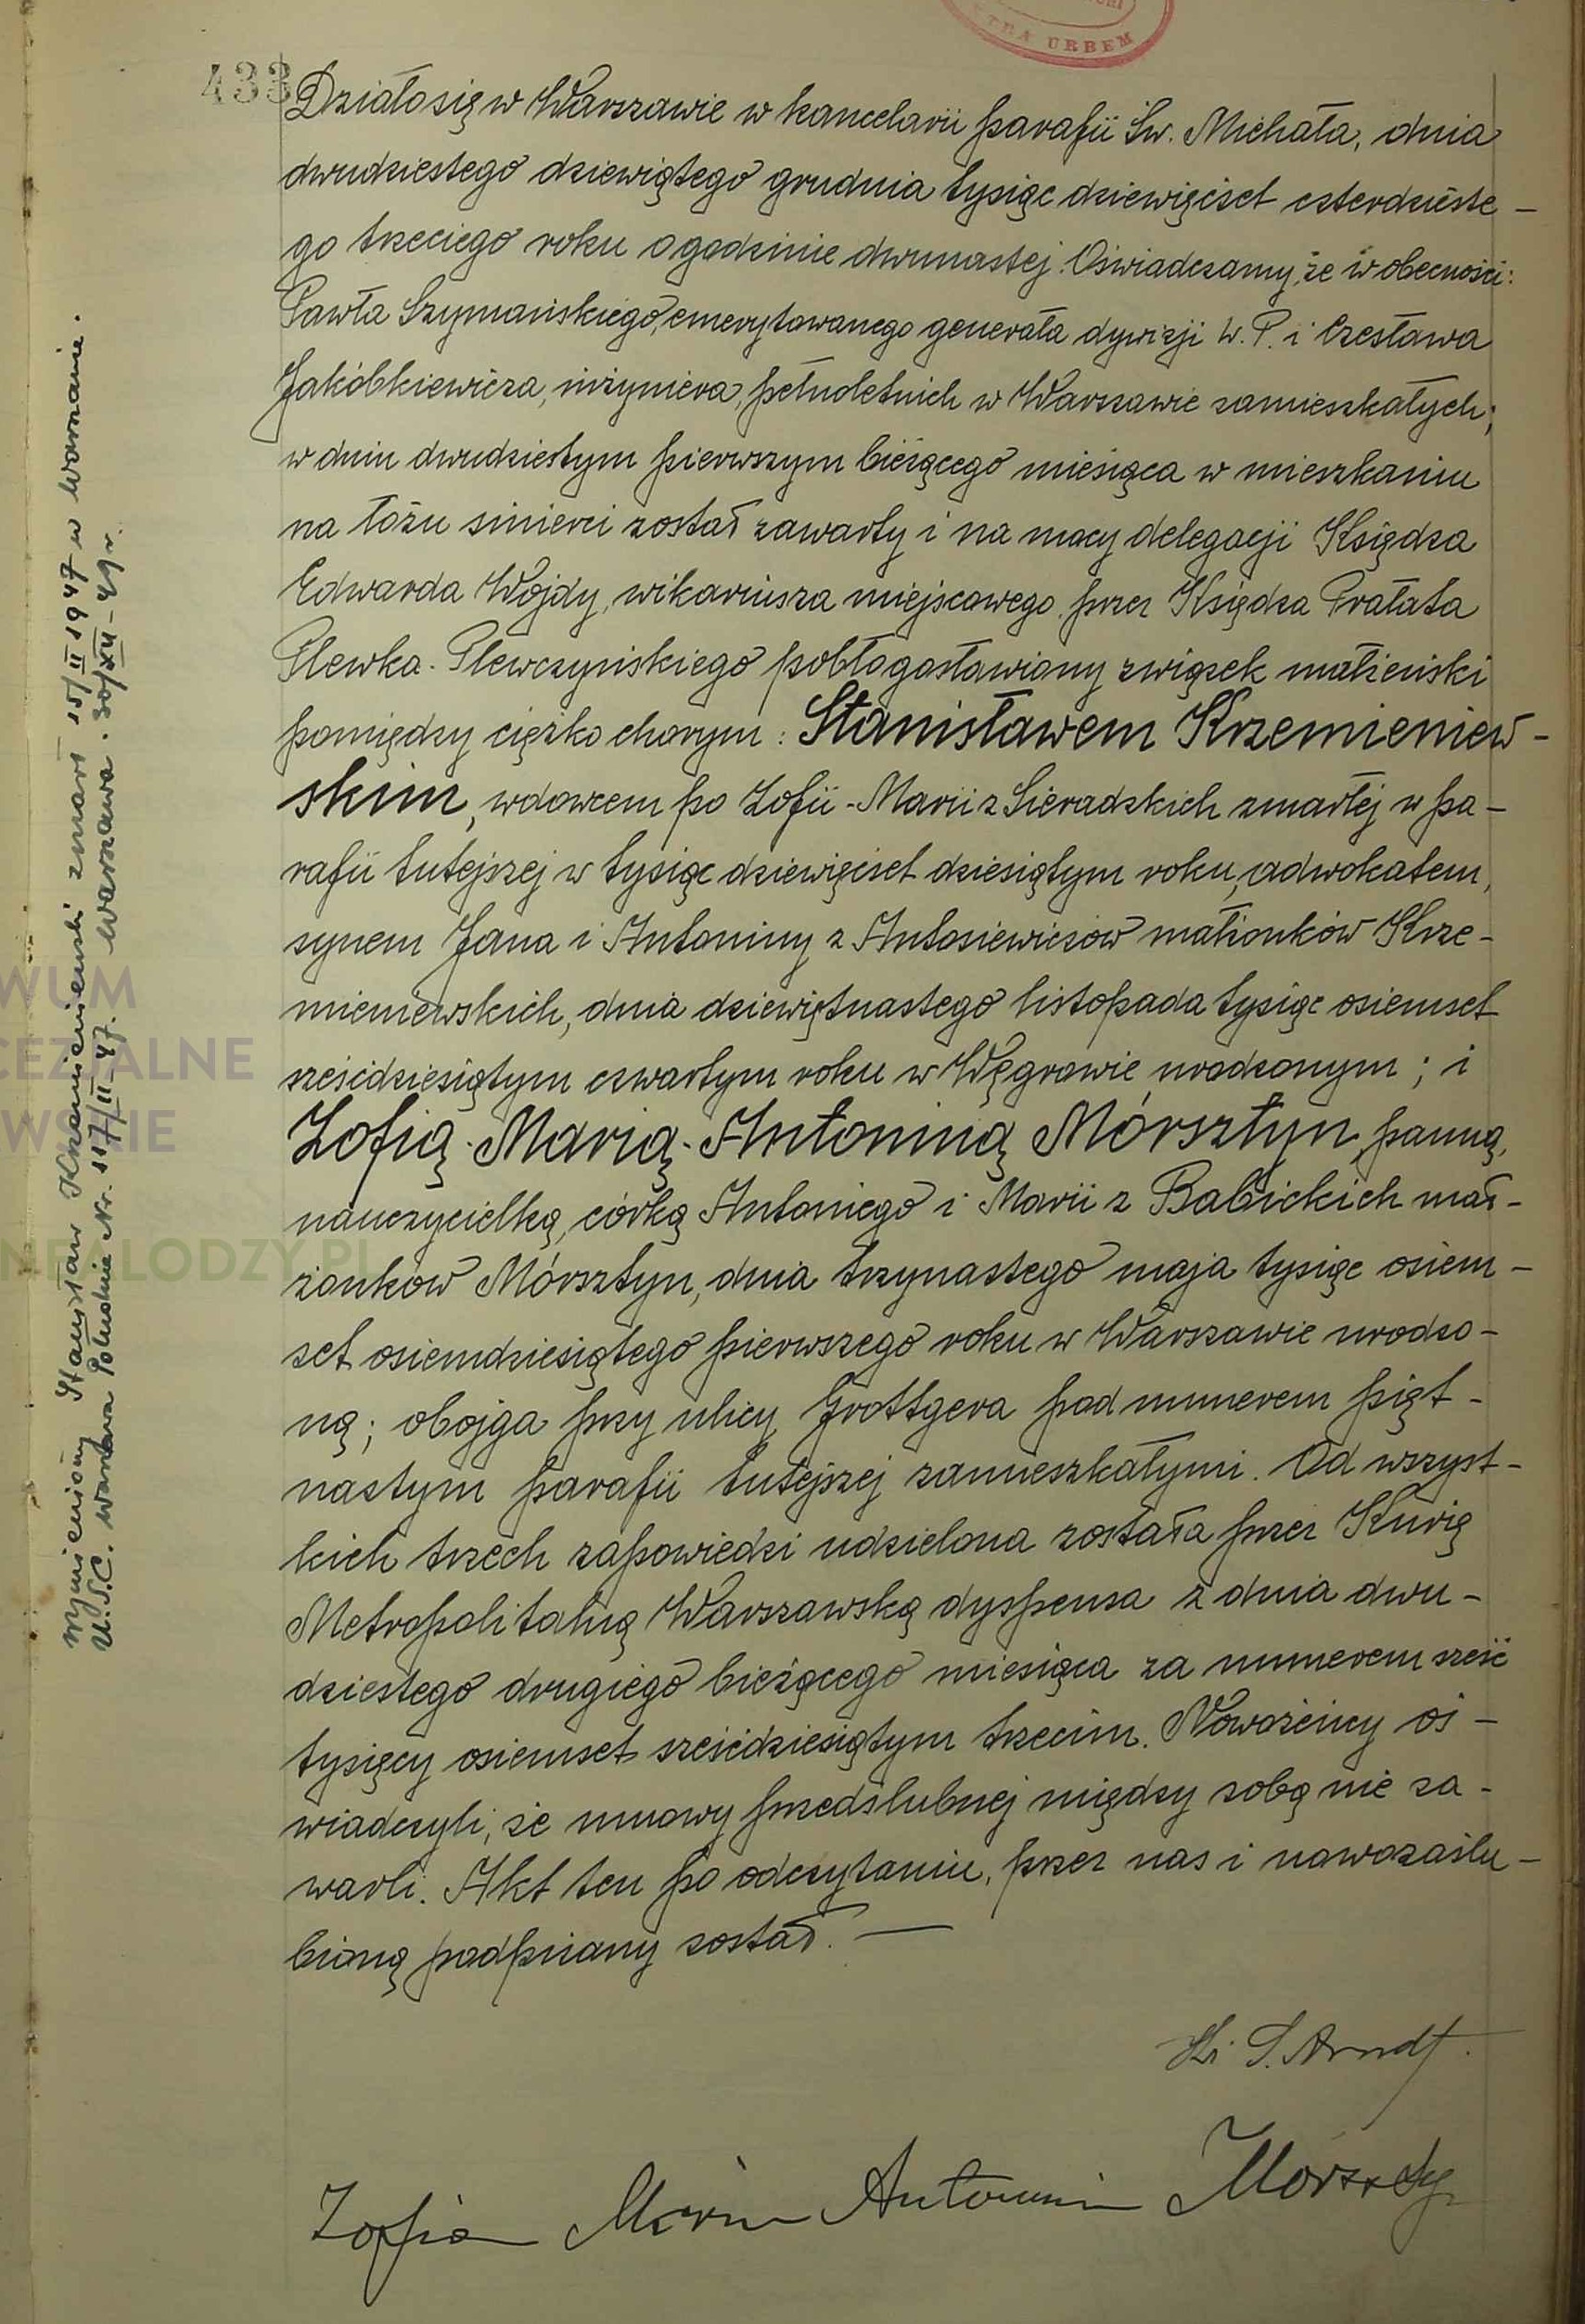 TRA URBEM
433
Działo się w Warszawie w kancelarii parafii Św. Michała, dnia
dwudziestego dziewiątego grudnia tysiąc dziewięćset czterdzieste -
go trzeciego roku o godzinie dwunastej. Oświadczamy, że w obecności:
Pawła Szymańskiego, emerytowanego generała dywizji W. P. i Czesława
Jakóbkiewicza, inżyniera, pełnoletnich w Warszawie zamieszkałych;
w dniu dwudziestym pierwszym bieżącego miesiąca w mieszkaniu
na łożu śmierci został zawarty i na mocy delegacji Księdza
Edwarda Wojdy, wikariusza miejscowego, przez Księdza Prałata
Plewka-Plewczyńskiego pobłogosławiony związek małżeński
pomiędzy ciężko chorym: Stanisławem Krzemieniew -
skim, wdowcem po Zofii-Marii z Sieradzkich zmarłej w pa -
rafii tutejszej w tysiąc dziewięćset dziesiątym roku, adwokatem,
synem Jana i Antoniny z Antosiewiczów małżonków Krze -
mieniewskich, dnia dziewiętnastego listopada tysiąc osiemset
sześćdziesiątym czwartym roku w Węgrowie urodzonym; i
Zofią-Marią-Antoniną Mórsztyn, panną,
nauczycielką, córką Antoniego i Marii z Babickich mał -
żonków Mórsztyn, dnia trzynastego maja tysiąc osiem -
set osiemdziesiątego pierwszego roku w Warszawie urodzo -
ną; obojga przy ulicy Grottgera pod numerem pięt -
nastym parafii tutejszej zamieszkałymi. Od wszyst -
kich trzech zapowiedzi udzielona została przez Kurię
Metropolitalną Warszawską dyspensa z dnia dwu -
dziestego drugiego bieżącego miesiąca za numerem sześć
tysięcy osiemset sześćdziesiątym trzecim. Nowożeńcy oś -
wiadczyli, że umowy przedślubnej między sobą nie za -
warli. Akt ten po odczytaniu, przez nas i nowozaślu -
bioną podpisany został. —
Ks. S. Arndt.
Zofia Maria Antonina Mórszty
wymieniony Stanisław Krzemieniewski zmarł 15/II 1947 w Warszawie.
U.S.C. Warszawa Południe Nr. 117/II-47. Warszawa. 30/XII-49 r.
WUM
CEZJALNE
WSKIE
NEALODZY.PL